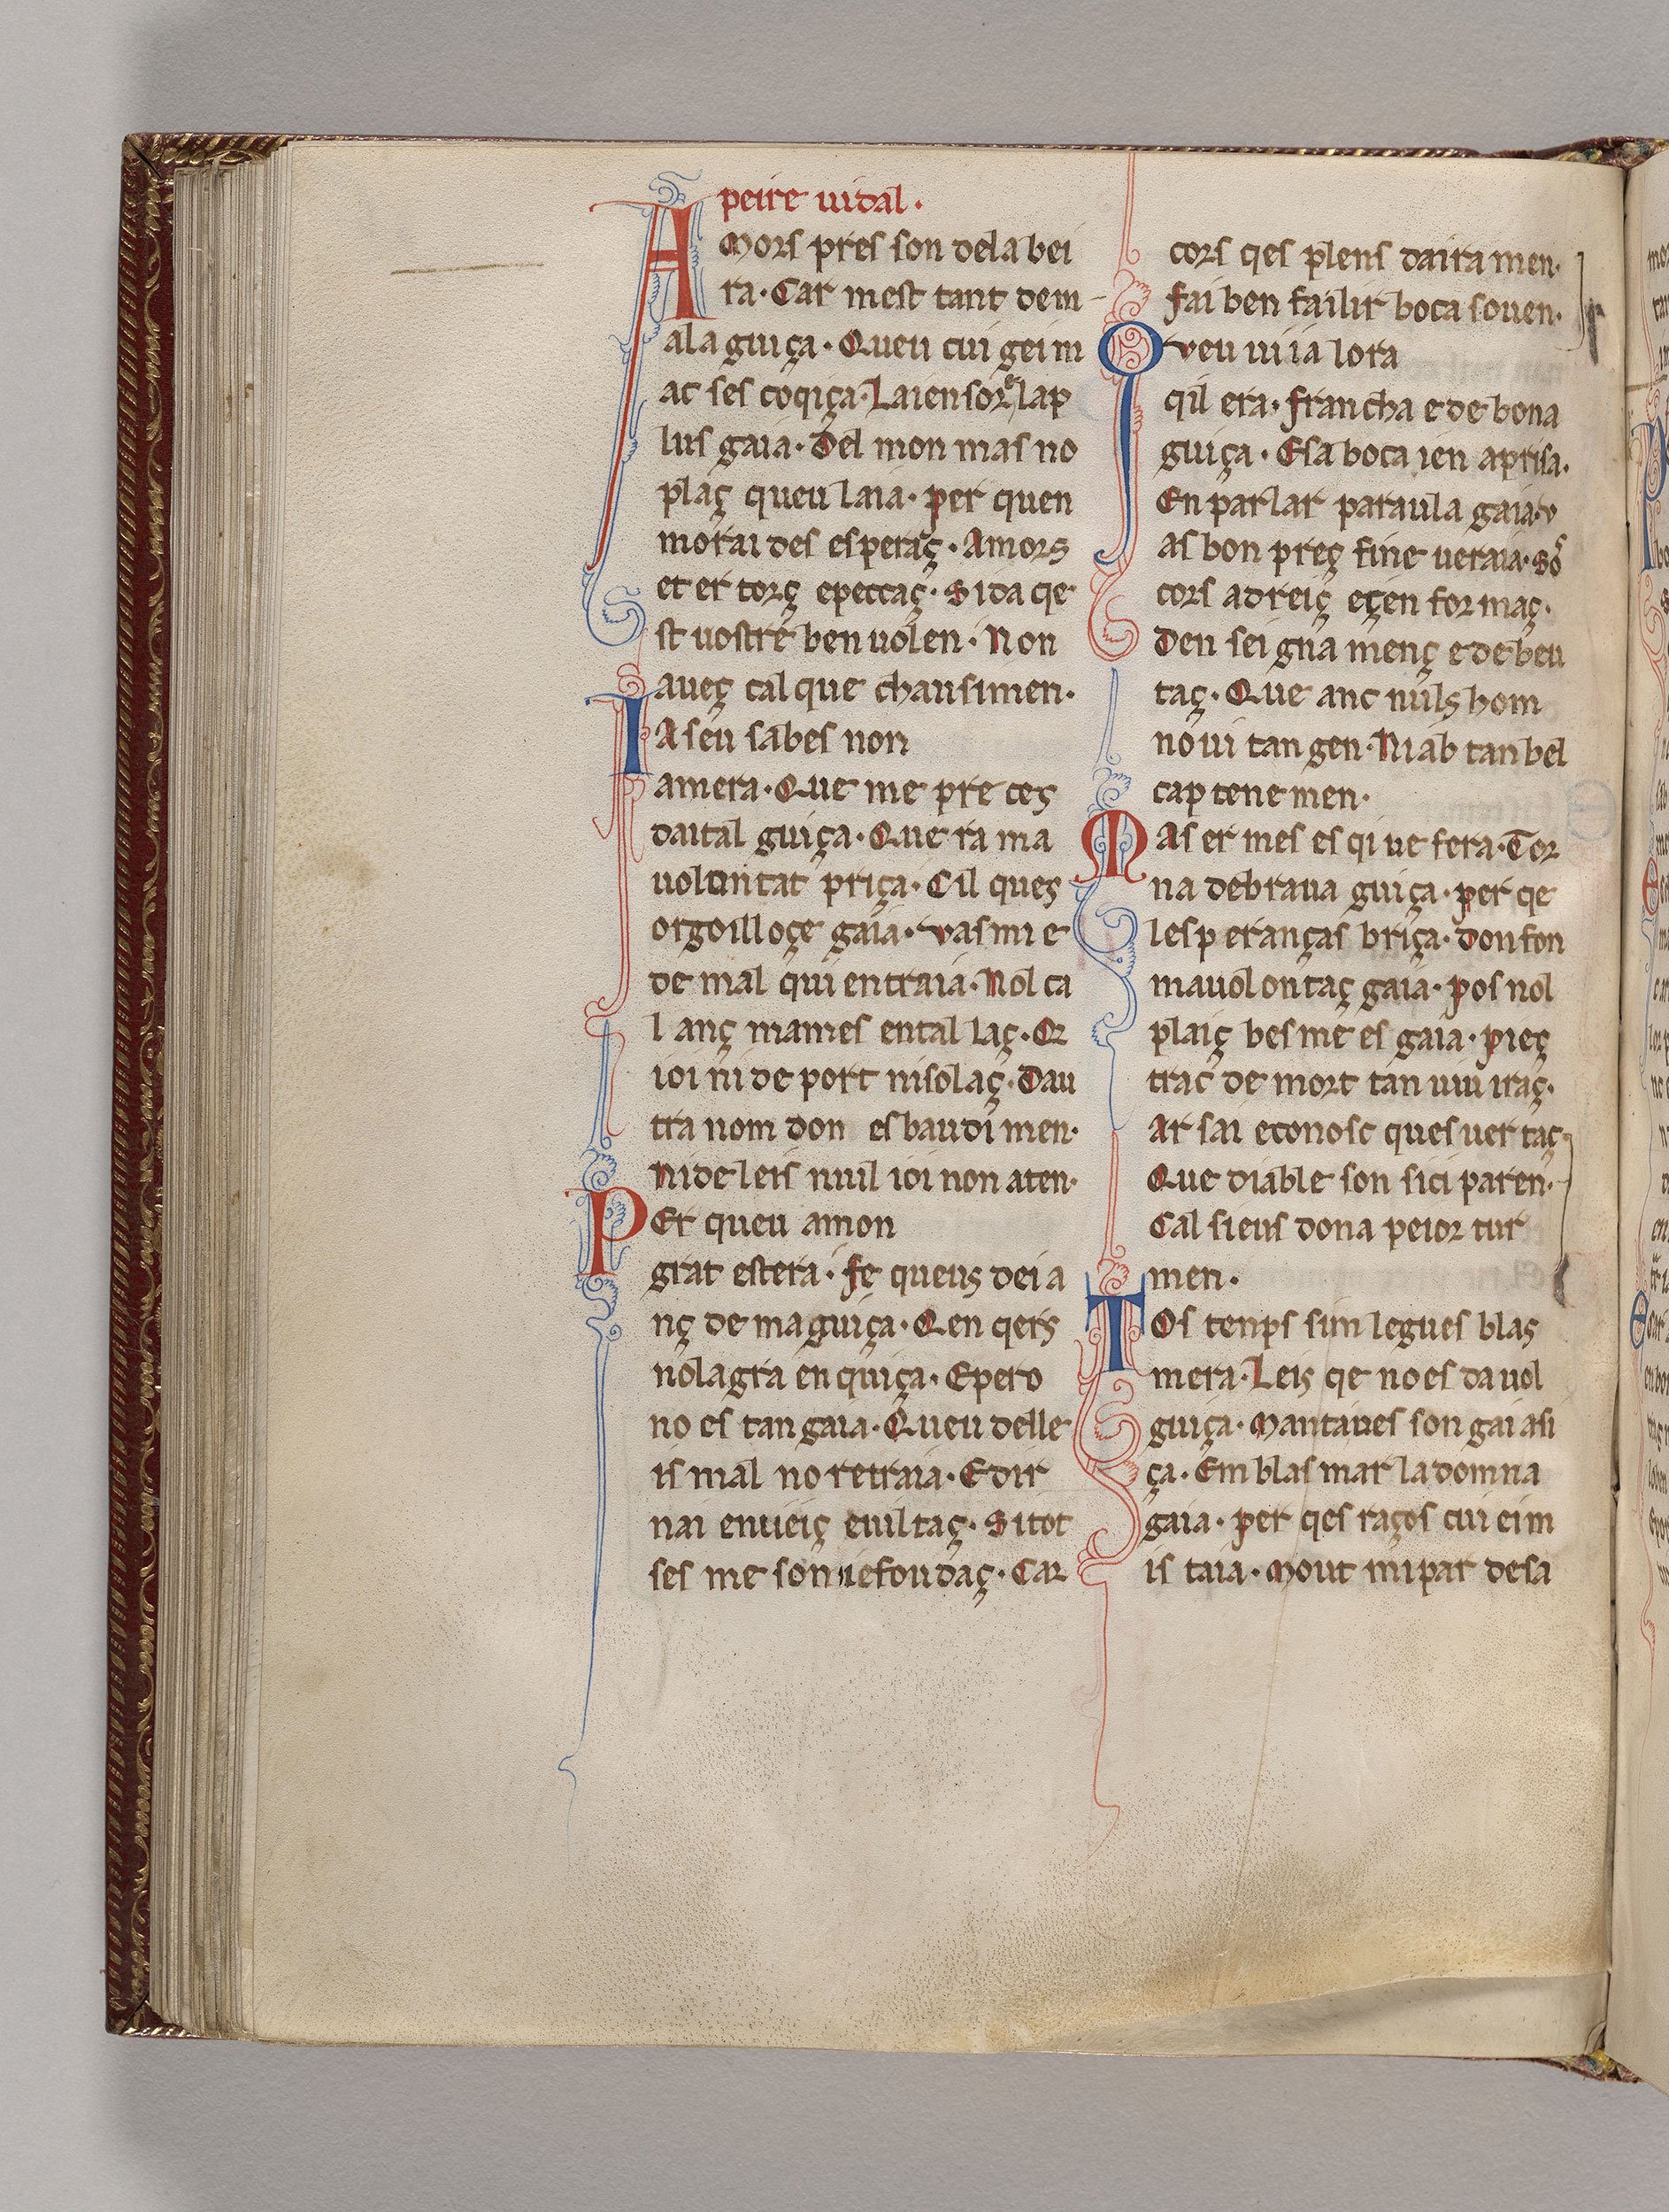 peire uidal.
AMors pres son dela bei
ra. Car mest tant dem
ala guiça. Queu cui geim
ac ses coqiça. Laiensor e lap
lus gaia. Del mon mas no
plaç queu laia. per quen
morai des esperaç. Amors
et er torç epeccaç. Sida qe
st uostre ben uolen. Non
aueç cal que chausimen.
IA seu sabes non
amera. Que me pre ceç
daital guiça. Que ra ma
uolontat priça. Cil ques
orgoilloçe gaia. vas mi e
de mal qui entraia. Nol ca
l anç mames ental laç. Qr
ioi ni de port nisolaç. Dau
tra nom don esbaudi men.
Nide leis nuil ioi non aten.
PEr queu amon
grat estera. fe queus dei a
nç de ma guiça. Qen qers
nolagra en quiça. Epero
no es tan gaia. Queu delle
is mal no retraia. E dir
nai enueiç euiltaç. Sitot
ses me son iefondaç. Car
cors qes plens daira men.
fai ben failir boca souen.
Qveu ui ia lora
qil era. francha e de bona
guiça. Esa boca ien aprisa.
En parlar paraula gaia. v
as bon preç fine ueraia. so
cors adreiç eçen for maç.
Den sei gna menç e de beu
taç. Que anc nuls hom
no ui tan gen. Ni ab tan bel
cap tene men.
MAs er mes es qi ue fera. Tor
na de braua guiça. per qe
lesp eranças briça. don fon
mauolontaç gaia. pos nol
plaiç bes me es gaia. pieç
trac de mort tan uiu iraç.
Ar sai econosc ques uer taç.
Que diable son sici paren.
Cal sieus dona peior tur
men.
TOs temps sim legues blas
mera. Leis qe no es da uol
guiça. Mantaues son gai asi
ça. Em blas mar la domna
gaia. per qes raços cui eim
is taia. Mout mi par de sa